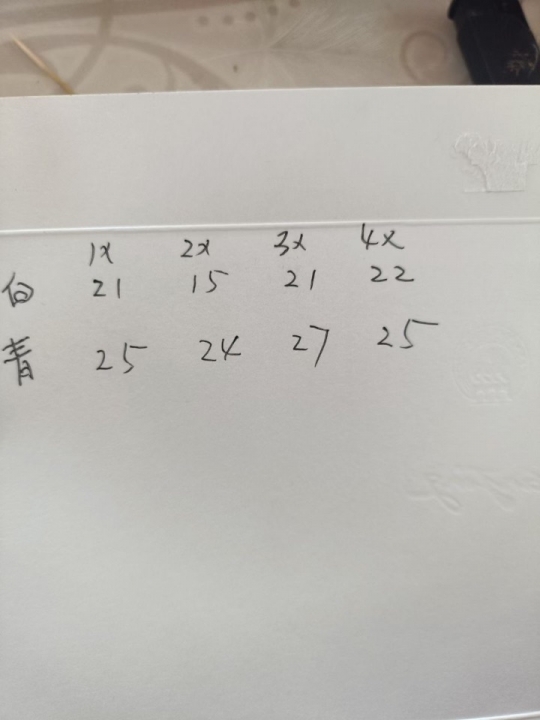 1x 2x 3x 4x
白 21 15 21 22
青 25 24 27 25